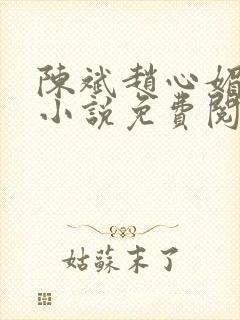 陳斌趙心媚
小說免費閱
姑蘇末了